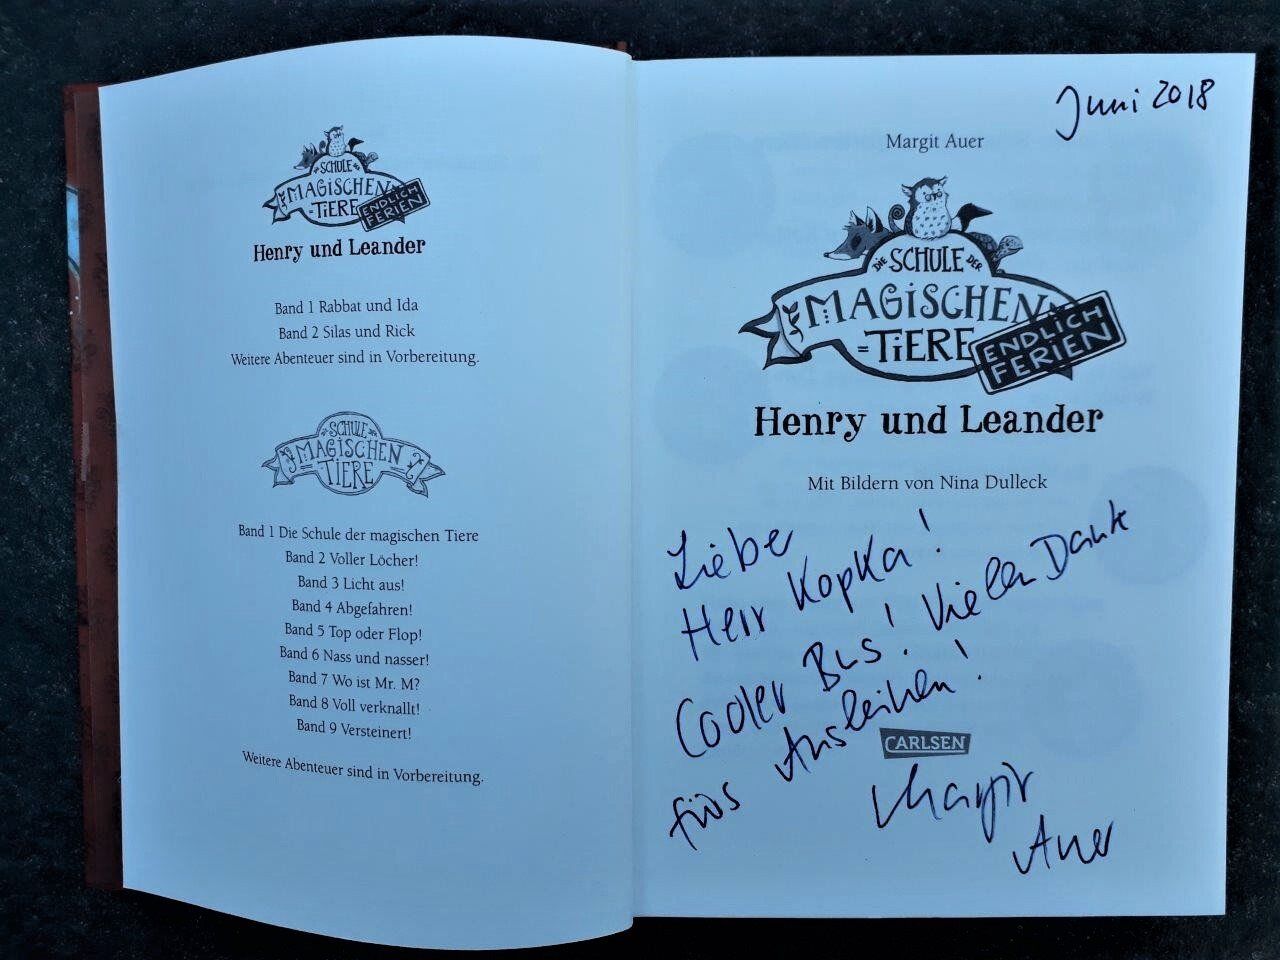 DIE SCHULE DER
MAGISCHEN
TIERE
ENDLICH
FERIEN
Henry und Leander
Band 1 Rabbat und Ida
Band 2 Silas und Rick
Weitere Abenteuer sind in Vorbereitung.
DIE SCHULE DER
MAGISCHEN
TIERE
Band 1 Die Schule der magischen Tiere
Band 2 Voller Löcher!
Band 3 Licht aus!
Band 4 Abgefahren!
Band 5 Top oder Flop!
Band 6 Nass und nasser!
Band 7 Wo ist Mr. M?
Band 8 Voll verknallt!
Band 9 Versteinert!
Weitere Abenteuer sind in Vorbereitung.
Juni 2018
Margit Auer
DIE SCHULE DER
MAGISCHEN
TIERE
ENDLICH
FERIEN
Henry und Leander
Mit Bildern von Nina Dulleck
Liebe
Herr Kopka!
Cooler Bus! Vielen Dank
fürs Ausleihen!
CARLSEN
Margit
Auer